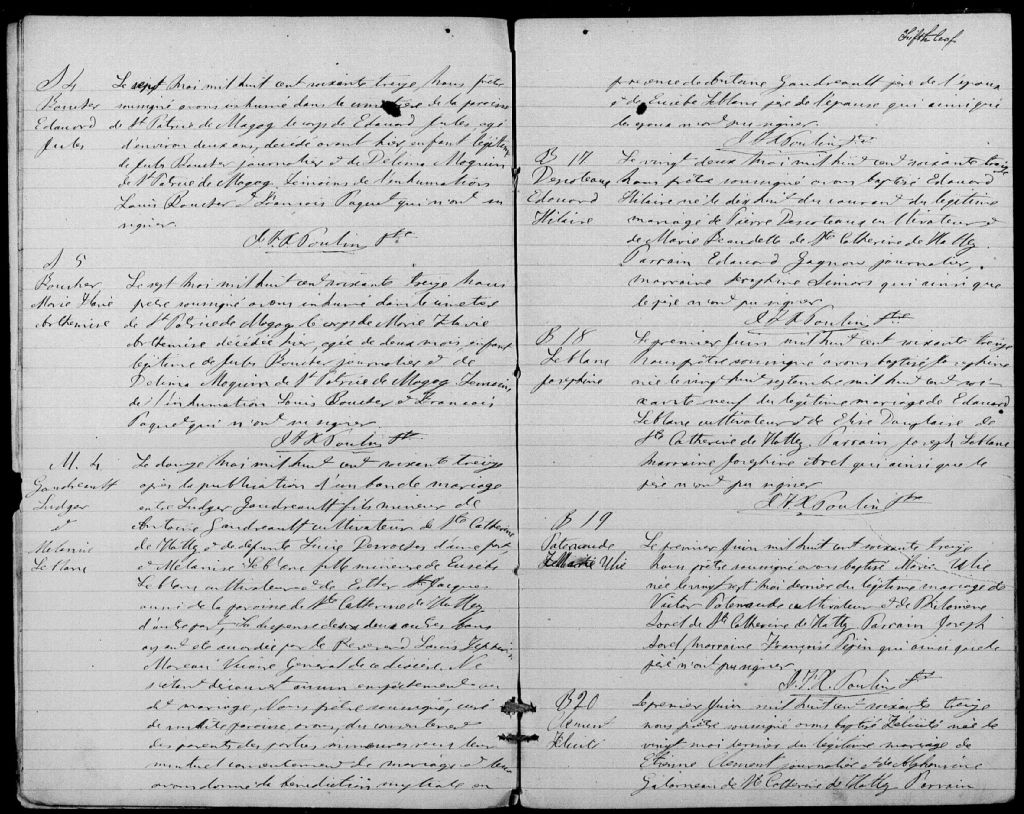 S 4
Boucher
Edouard
Jules
Le sept Mai mil huit cent soixante treize Nous prêtre
soussigné avons inhumé dans le cimetière de la paroisse
de St Patrice de Magog le corps de Edouard Jules, agé
d'environ deux ans, décédé avant hier, enfant légitime
de Jules Boucher journalier et de Delima Moquin
de St Patrice de Magog. Témoins de l'inhumation
Louis Boucher et François Paquet qui n'ont su
signer.
J. F. X. Poulin Ptre
S 5
Boucher
Marie
Arthemise
Le sept Mai mil huit cent soixante treize Nous
prêtre soussigné avons inhumé dans le cimetière
de St Patrice de Magog le corps de Marie
Arthemise décédée hier, agée de deux mois, enfant
légitime de Jules Boucher journalier et de
Delima Moquin de St Patrice de Magog Temoins
de l'inhumation Louis Boucher et Francois
Paquet qui n'ont su signer.
J F X Poulin Ptre
M. 4
Gaudreault
Ludger
et
Melanise
Leblanc
Le douze Mai mil huit cent soixante treize
après la publication d'un ban de mariage
entre Ludger Gaudreault fils mineur de
Antoine Gaudreault cultivateur de Ste Catherine
de Hatley & de défunte Lucie Desrochers d'une part,
et Mélanise Leblanc fille mineure de Eusèbe
Leblanc cultivateur & de Esther St Jacques
aussi de la paroisse de Ste Catherine de Hatley
d'autre part, La dispense des deux autres bans
ayant été accordée par le Reverend Louis Zéphirin
Moreau Vicaire Général de ce diocèse. Ne
s'étant découvert aucun empêchement au
dit mariage, Nous prêtre soussigné, curé
de cette paroisse avons, du consentement
des parents des parties mineures reçu leur
mutuel consentement de mariage et leur
avons donné la bénédiction nuptiale en
Fifth leaf
présence de Antoine Gaudreault père de l'époux
& de Eusèbe Leblanc père de l'épouse qui ainsi que
les époux n'ont pu signer.
J F X Poulin Ptre
B 17
Desroteaux
Edouard
Hilaire
Le vingt deux Mai mil huit cent soixante treize
Nous prêtre soussigné avons baptisé Edouard
Hilaire né le dix huit du courant du légitime
mariage de Pierre Desroteaux cultivateur et
de Marie Beaudette de Ste Catherine de Hatley.
Parrain Edouard Gagnon journalier,
marraine Josephine Simors qui ainsi que
le père n'ont pu signer
J F X Poulin Ptre
B 18
Leblanc
Josephine
Le premier Juin mil huit cent soixante treize
Nous prêtre soussigné avons baptisé Josephine
née le vingt huit septembre mil huit cent soi-
xante neuf du légitime mariage de Edouard
Leblanc cultivateur & de Elise Dauplaise de
Ste Catherine de Hatley. Parrain Joseph Leblanc
marraine Josephine Aret qui ainsi que le
père n'ont pu signer
J F X Poulin Ptre
B 19
Patenaude
Marie Ulie
Le premier Juin mil huit cent soixante treize
Nous prêtre soussigné avons baptisé Marie Ulie
née le vingt sept Mai dernier du légitime mariage de
Victor Patenaude cultivateur & de Philomene
Sorel de Ste Catherine de Hatley Parrain Joseph
Sorel, marraine Françoise Pepin qui ainsi que le
père n'ont pu signer
J. F. X. Poulin Ptre
B 20
Clement
Felicité
Le premier Juin mil huit cent soixante treize
nous prêtre soussigné avons baptisé Felicité née le
vingt mai dernier du légitime mariage de
Etienne Clement journalier et de Alphonsine
Galarneau de Ste Catherine de Hatley Parrain